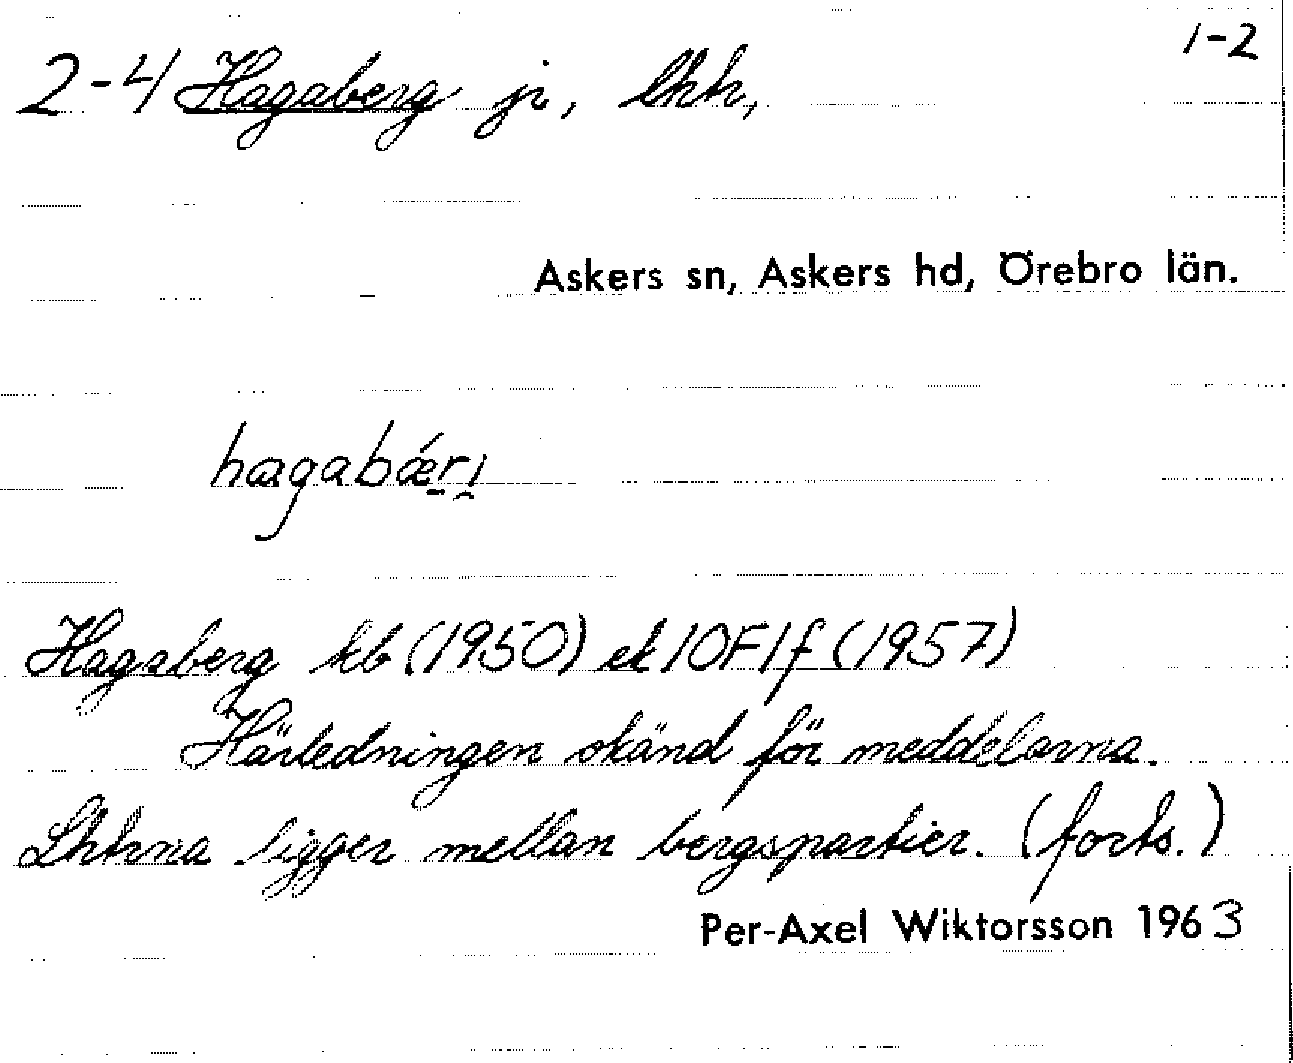 1-2
2-4 Hagaberg jr, lhh,
Askers sn, Askers hd, Örebro län.
hagabǽri
Hagaberg kb (1950) ek 10F1f (1957)
Härledningen okänd för meddelarna.
Lhhrna ligger mellan bergspartier. (forts.)
Per-Axel Wiktorsson 1963